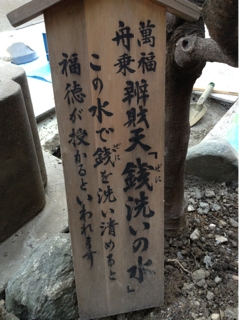 萬福
舟乗 辨財天「銭洗いの水」
ぜに
この水で銭を洗い清めると
ぜに
福徳が授かるといわれます